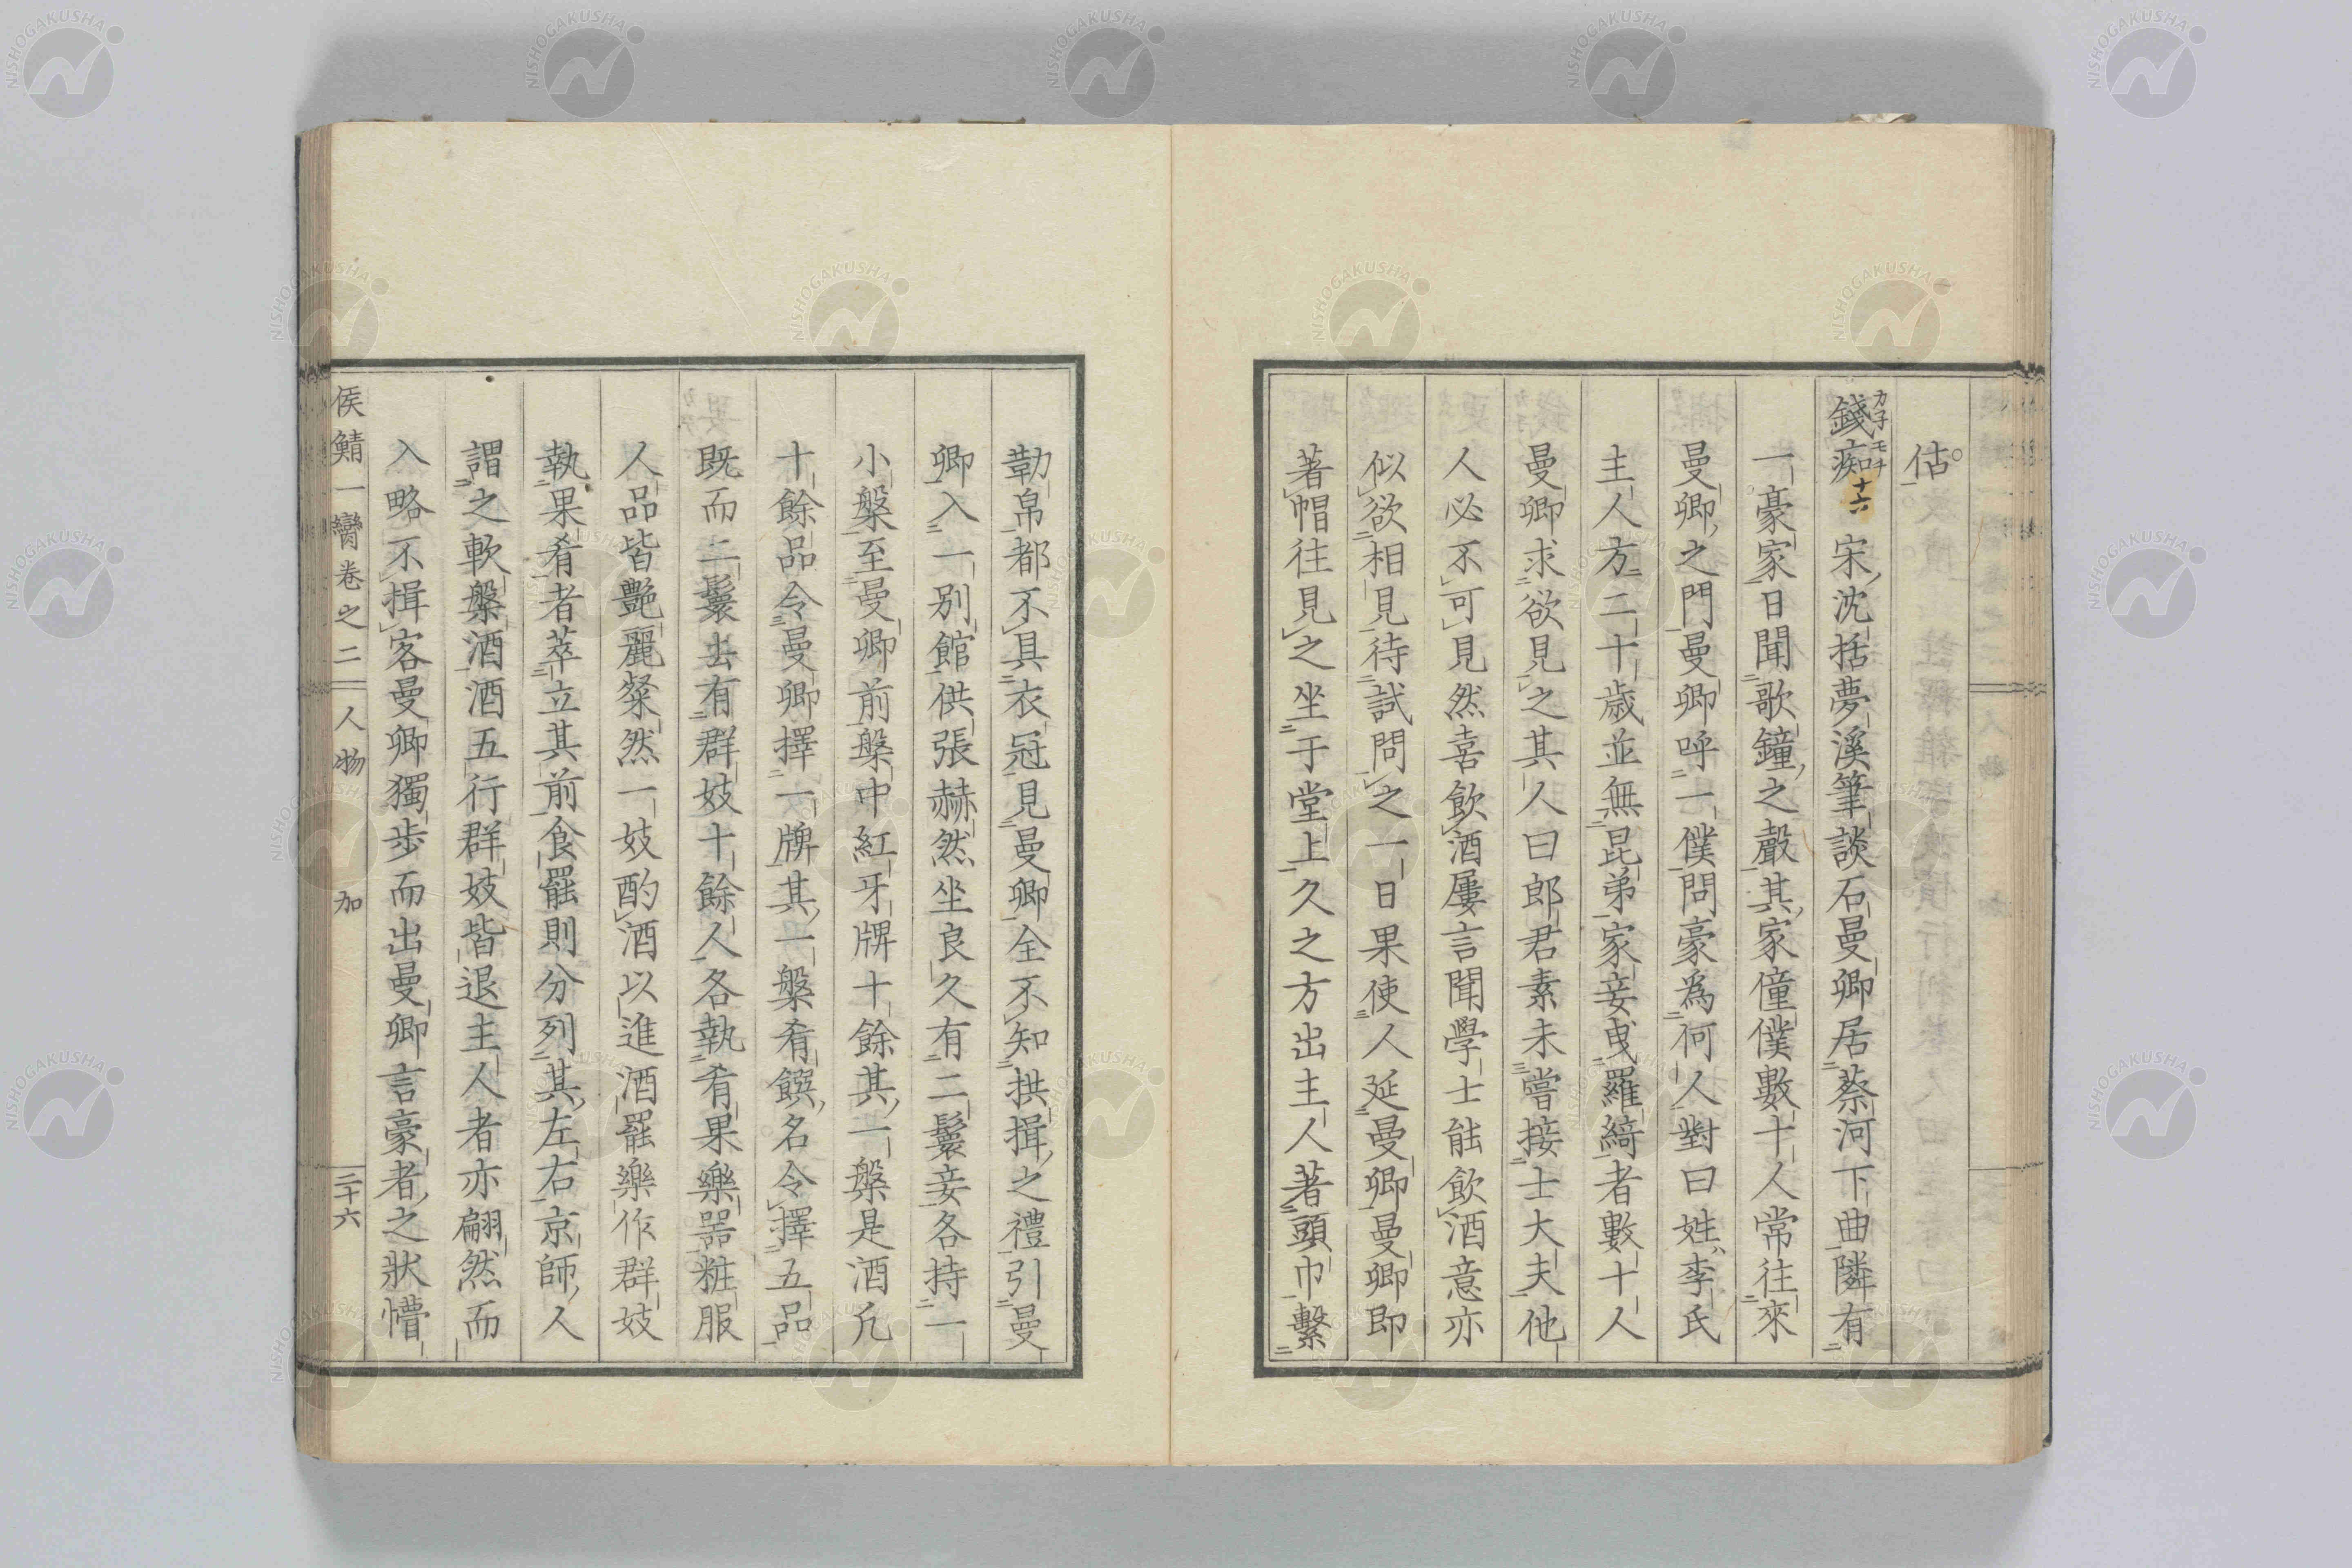 估。
錢癡十六 宋沈括夢溪筆談石曼卿居蔡河下曲隣有
一豪家日聞歌鐘之聲其家僮僕數十人常往來
曼卿之門曼卿呼一僕問豪為何人對曰姓李氏
主人方二十歳並無昆弟家妾曳羅綺者數十人
曼卿求欲見之其人曰郎君素未嘗接士大夫他
人必不可見然喜飲酒屢言聞學士能飲酒意亦
似欲相見待試問之一日果使人延曼卿曼卿即
著帽往見之坐于堂上久之方出主人著頭巾繫
勒帛都不具衣冠見曼卿全不知拱揖之禮引曼
卿入一別館供張赫然坐良久有二鬟妾各持一
小槃至曼卿前槃中紅牙牌十餘其一槃是酒凡
十餘品令曼卿擇一牌其一槃肴饌名令擇五品
既而二鬟去有群妓十餘人各執肴果樂器粧服
人品皆艷麗粲然一妓酌酒以進酒罷樂作群妓
執果肴者萃立其前食罷則分列其左右京師人
謂之軟槃酒酒五行群妓皆退主人者亦翩然而
入略不揖客曼卿獨歩而出曼卿言豪者之狀懵
侯鯖一臠卷之二 人物 加 三十六
NISHOGAKUSHA